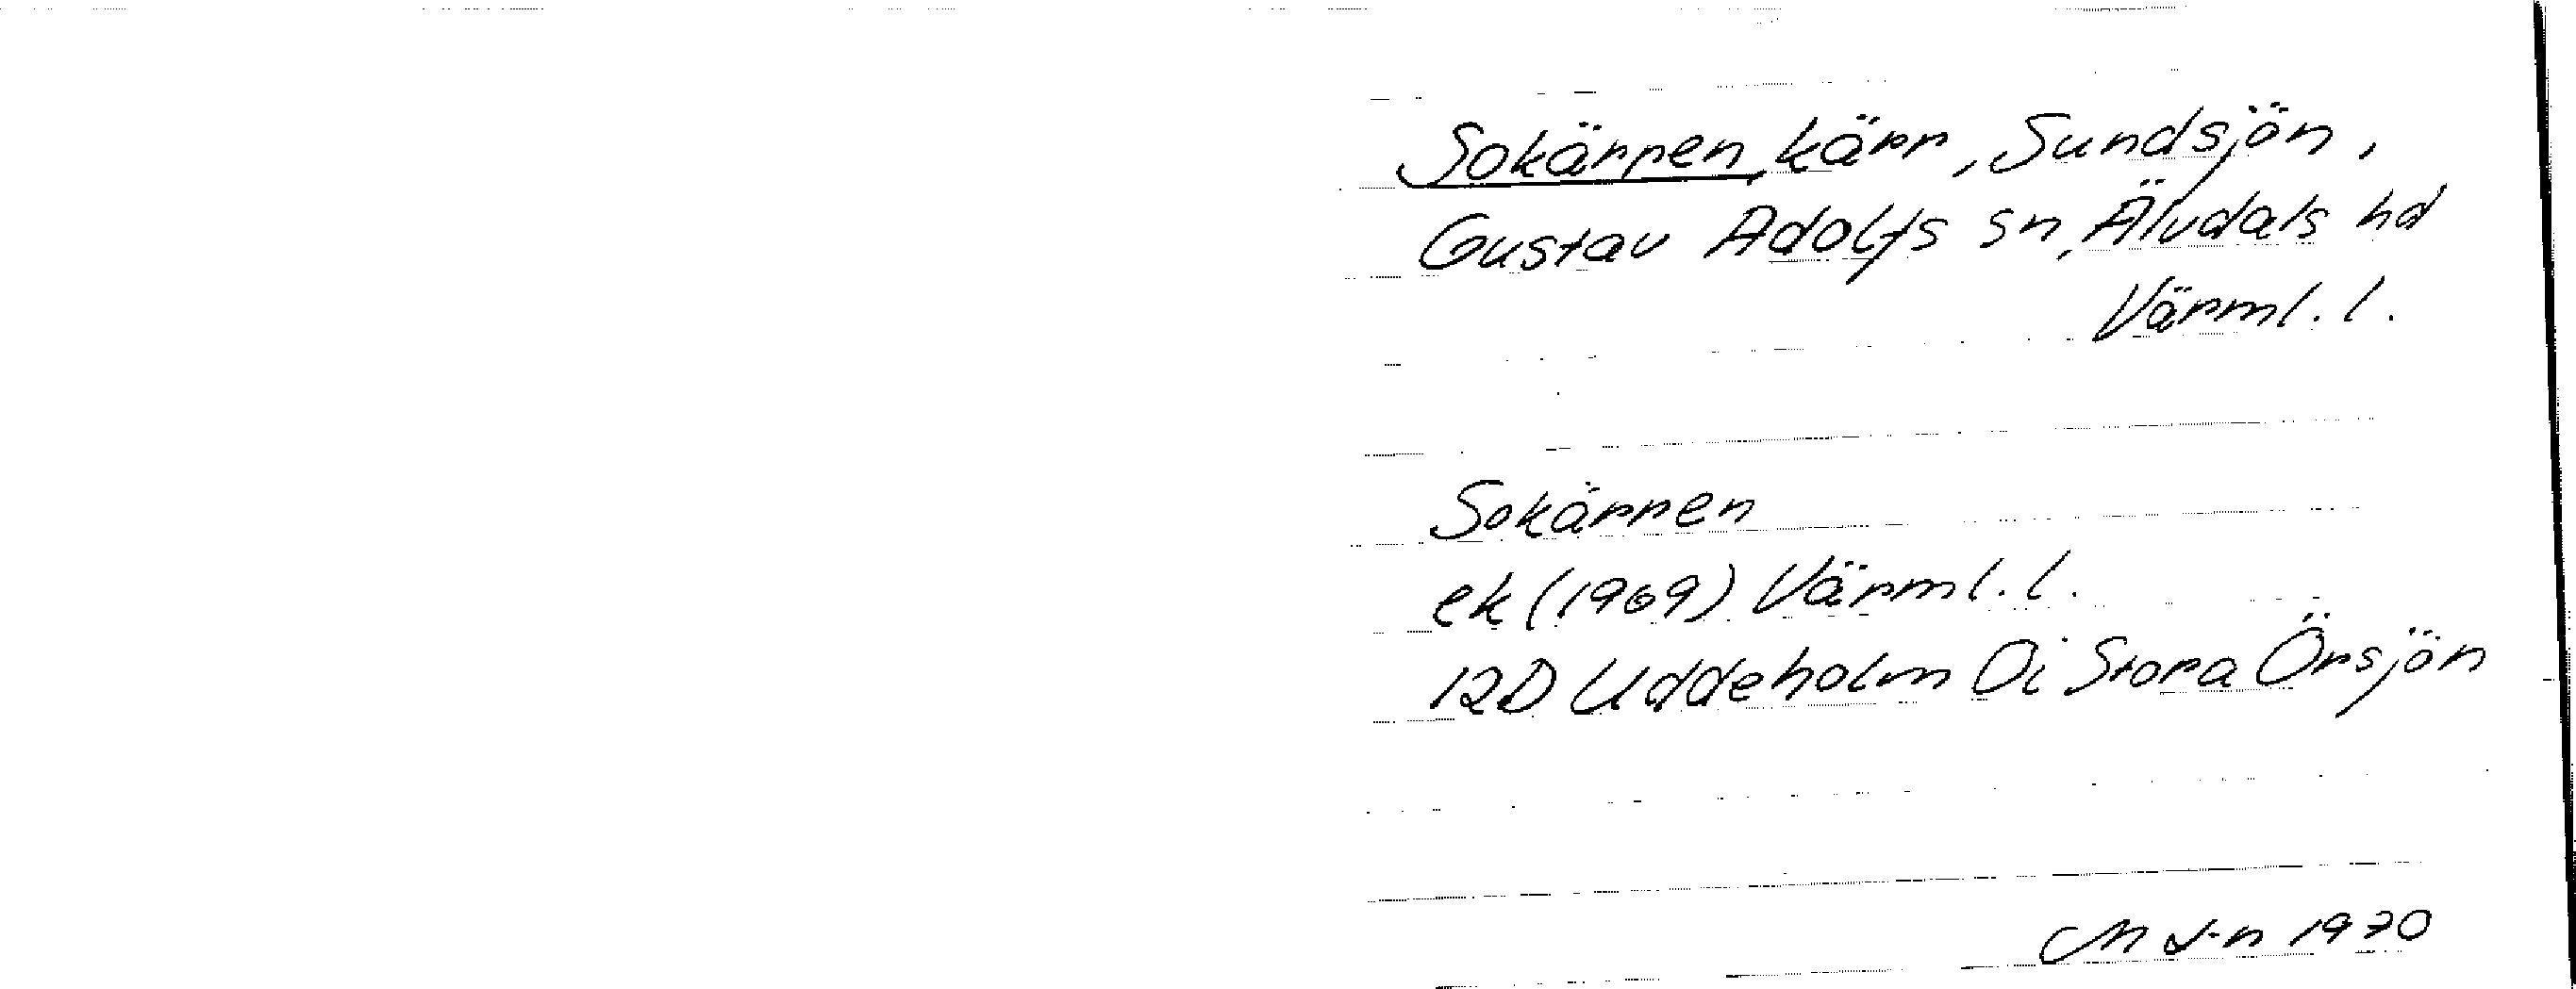 Sokärren, kärr, Sundsjön,
Gustav Adolfs sn, Älvdals hd
Värml. l.
Sokärren
ek (1969) Värml. l.
12D Uddeholm 0i Stora Örsjön
1970